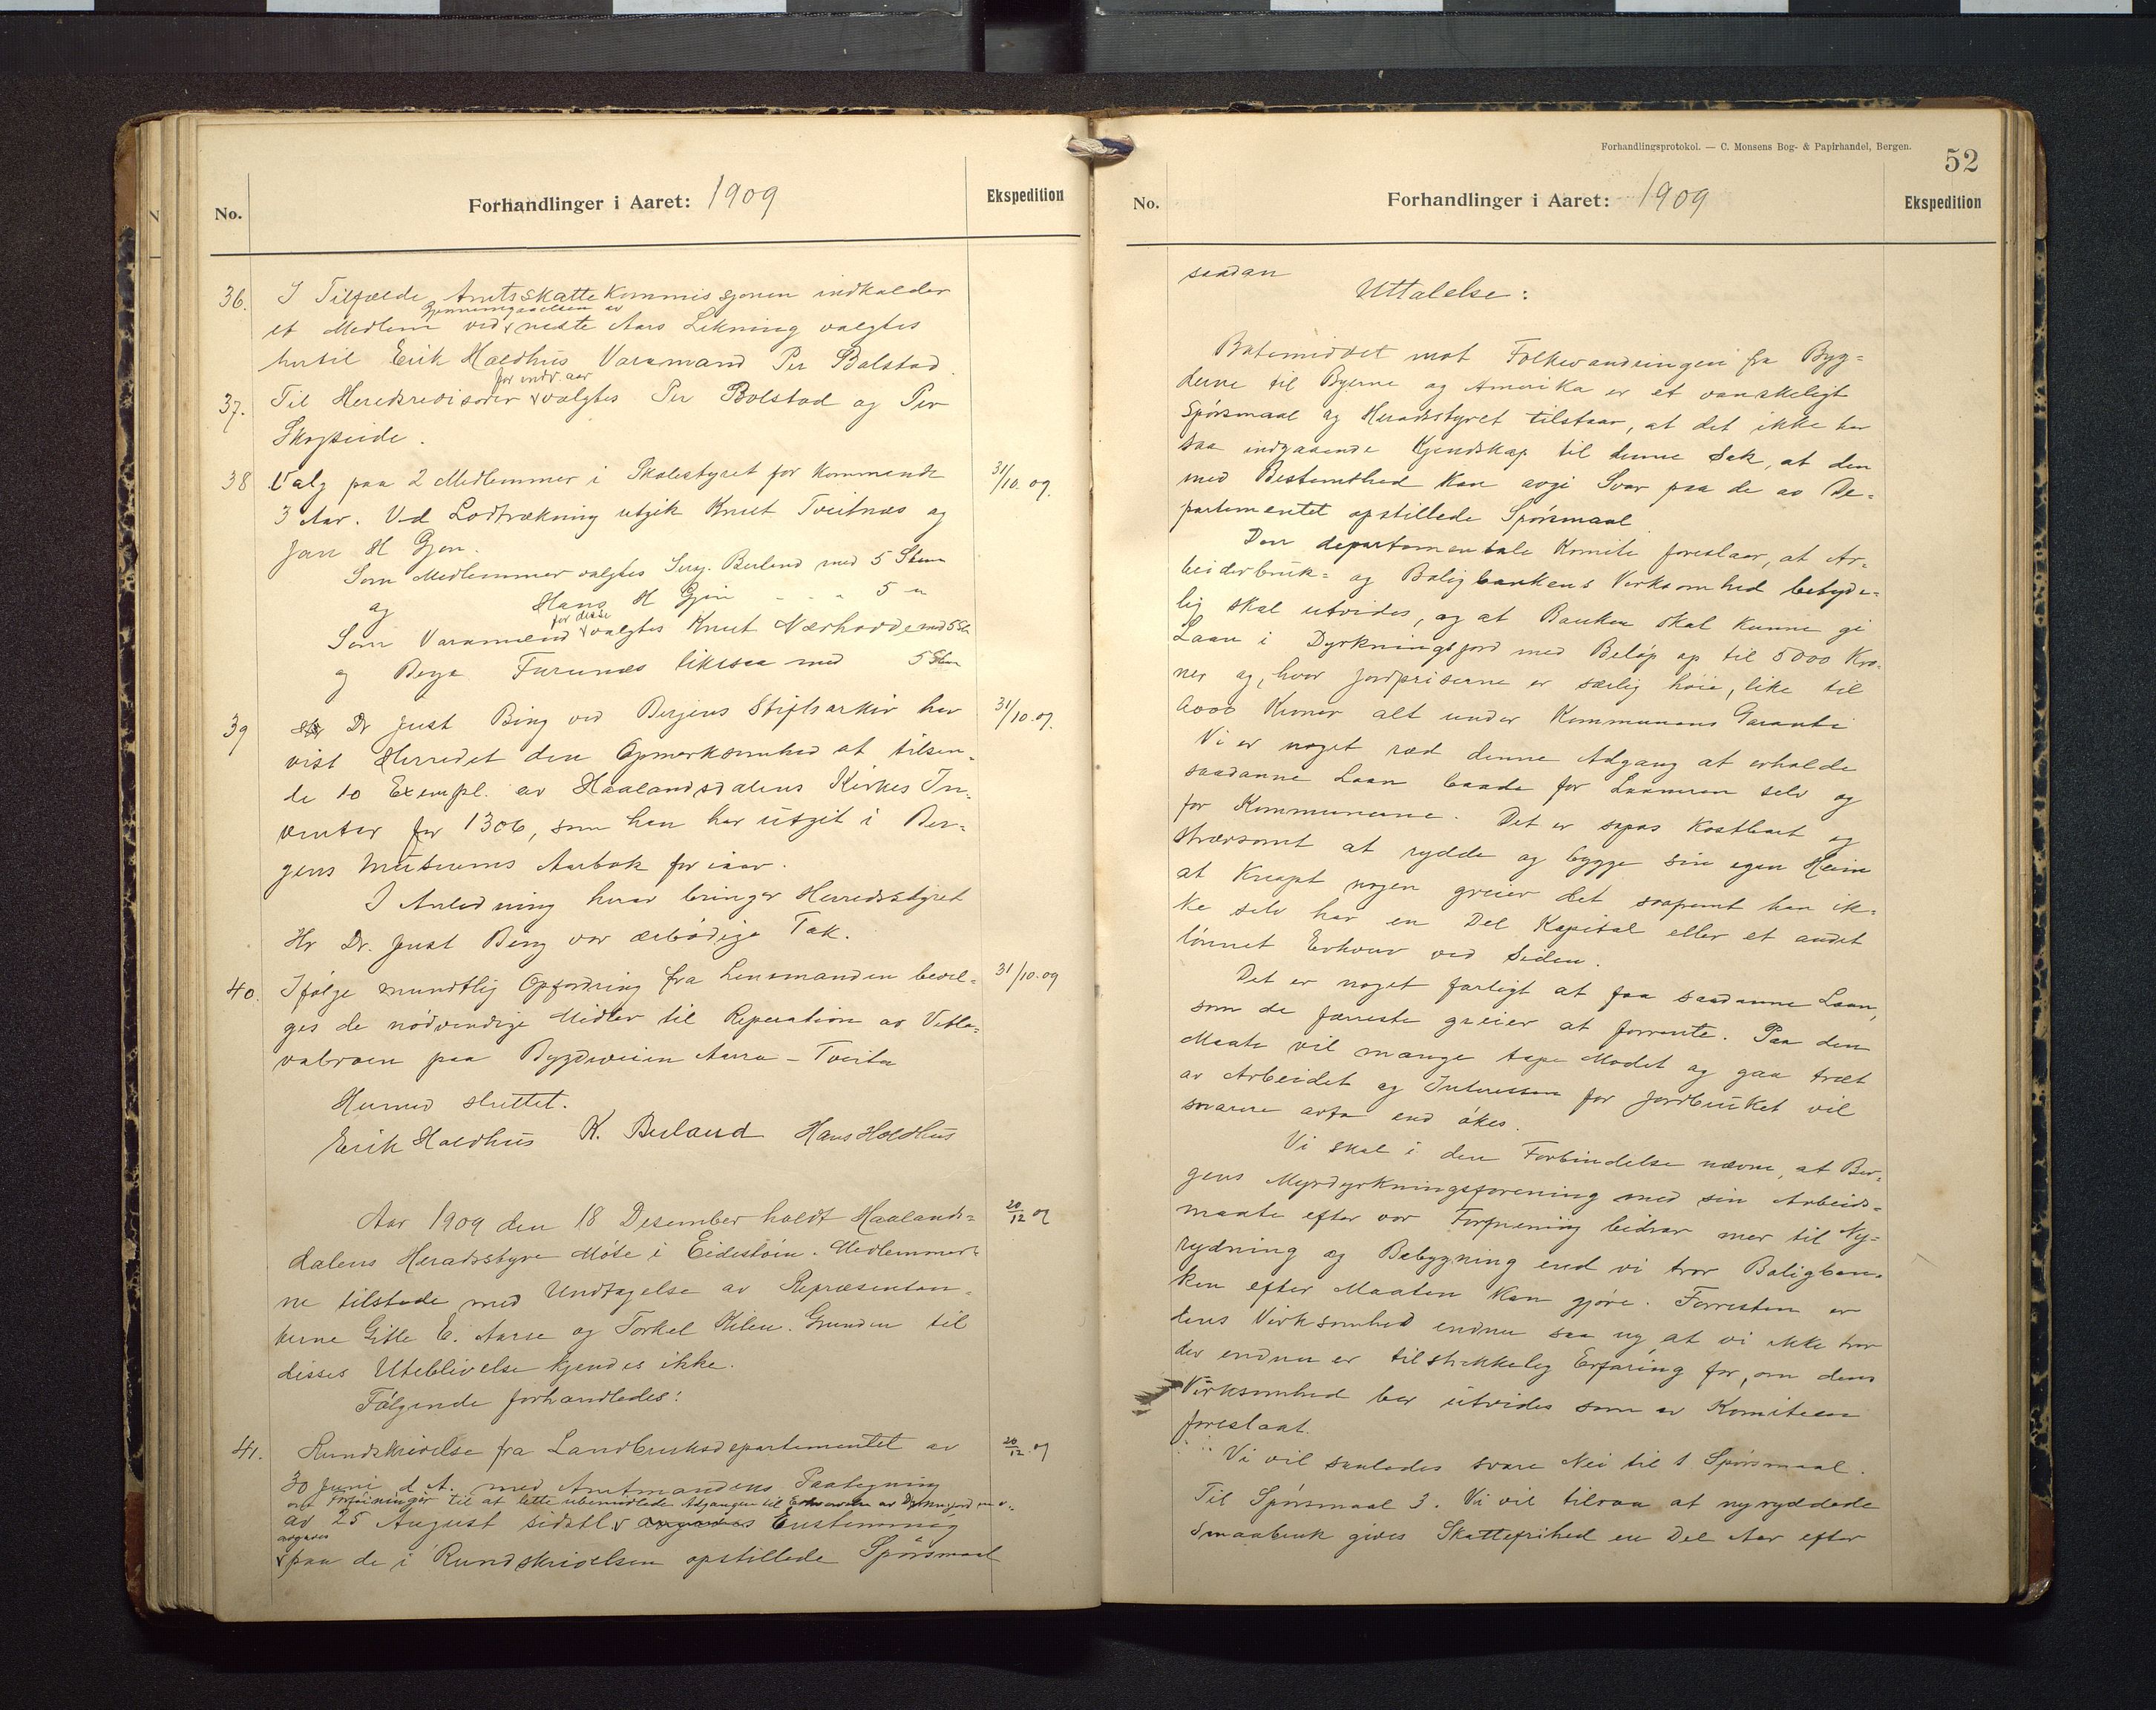 No.
Forhandlinger i Aaret: 1909
Ekspedition
36. I Tilfælde Amtsskattekommissjonen indkalder
Gjennemgaaelsen av
et Medlem ved v neste Aars Likning valgtes
hertil Erik Haldhus Varamand Per Bolstad.
for indv. aar
37. Til Heredsrevisorer v valgtes Per Bolstad og Per
Skogseide.
38 Valg paa 2 Medlemmer i Skolestyret for kommende 31/10.09.
3 Aar. Ved Lodtrækning utgik Knut Tveitnæs og
Jan H Gjøn.
Som Medlemmer valgtes Berland med 5 Stem
og Hans H Gjøn - - - 5 -"
for disse
Som Varamænd v valgtes Knut Nærhovde med 5 St
og Børge Furunæs likesaa med 5 Stem
39 Dr Just Bing ved Bergens Stiftsarkiv har 31/10.09.
vist Herredet den Opmerksomhed at tilsen-
de 10 Exempl. av Haalandsdalens Kirkes In-
ventar for 1306, som han har utgit i Ber-
gens Museums Aarbok for iaar.
I Anledning herav bringer Herredsstyret
Hr Dr. Just Bing vor ærbødige Tak.
40. Ifølge mundtlig Opfordring fra Lensmanden bevil- 31/10.09
ges de nødvendige Midler til Reperation av Vetla-
vabroen paa Bygdeveien Aarra - Tveita
Hermed sluttet.
Erik Haldhus K. Berland Hans Holdhus
Aar 1909 den 18 Desember holdt Haalands- 20/12 09
dalens Heradsstyre Møte i Eidestøen. Medlemmer-
ne tilstede med Undtagelse av Repræsentan-
terne Gitle E. Aarse og Torkel Kilen. Grunden til
disses Uteblivelse kjendes ikke.
Følgende forhandledes:
41. Rundskrivelse fra Landbruksdepartementet av 20/12.09
30 Juni d. A. med Amtmandens Paategning
om Føininger til at lette ubemidlede Adgangen til Erhvervelse av Dyrkningsjord m. v.
av 25 August sidstl. v avgaves Enstemmig
avgaves
v paa de i Rundskrivelsen opstillede Spørsmaal
Forhandlingsprotokol. — C. Monsens Bog- & Papirhandel, Bergen.
52
No.
Forhandlinger i Aaret: 1909
Ekspedition
saadan
Uttalelse:
Botemidlet mot Folkevandringen fra Byg-
derne til Byerne og Amerika er et vanskeligt
Spørsmaal og Heradsstyret tilstaar, at det ikke har
saa indgaaende Kjendskap til denne Sak, at den
med Bestemthed kan avgi Svar paa de av De-
partementet opstillede Spørsmaal
Den departementale Komite foreslaar, at Ar-
beiderbruk- og Boligbankens Virksomhed betyde-
lig skal utvides, og at Banken skal kunne gi
Laan i Dyrkningsjord med Beløp op til 5000 Kro-
ner og, hvor Jordpriserne er særlig høie, like til
8000 Kroner alt under Kommunens Garanti
Vi er noget ræd denne Adgang at erholde
saadanne Laan baade for Laaneren selv og
for Kommunerne. Det er sopas kostbart og
strævsomt at rydde og bygge sin egen Heim
at knapt nogen greier det saafremt han ik-
ke selv har en Del Kapital eller et andet
lønnet Erhverv ved Siden.
Det er noget farligt at faa saadanne Laan,
som de færreste greier at forrente. Paa den
Maate vil mange tape Modet og gaa træt
av Arbeidet og Interessen for Jordbruket vil
snarere avta end økes.
Vi skal i den Forbindelse nævne, at Ber-
gens Myrdyrkningsforening med sin Arbeids-
maate efter vor Formening bidrar mer til Ny-
rydning og Bebygning end vi tror Boligban-
ken efter Maaten kan gjøre. Forresten er
dens Virksomhed endnu saa ny, at vi ikke tror
der endnu er tilstrækkelig Erfaring for, om dens
Virksomhed bør utvides som av Komiteen
foreslaat.
Vi vil saaledes svare Nei til 1 Spørsmaal.
Til Spørsmaal 3. Vi vil tilraa at nyryddede
Smaabruk gives Skattefrihed en Del Aar efter